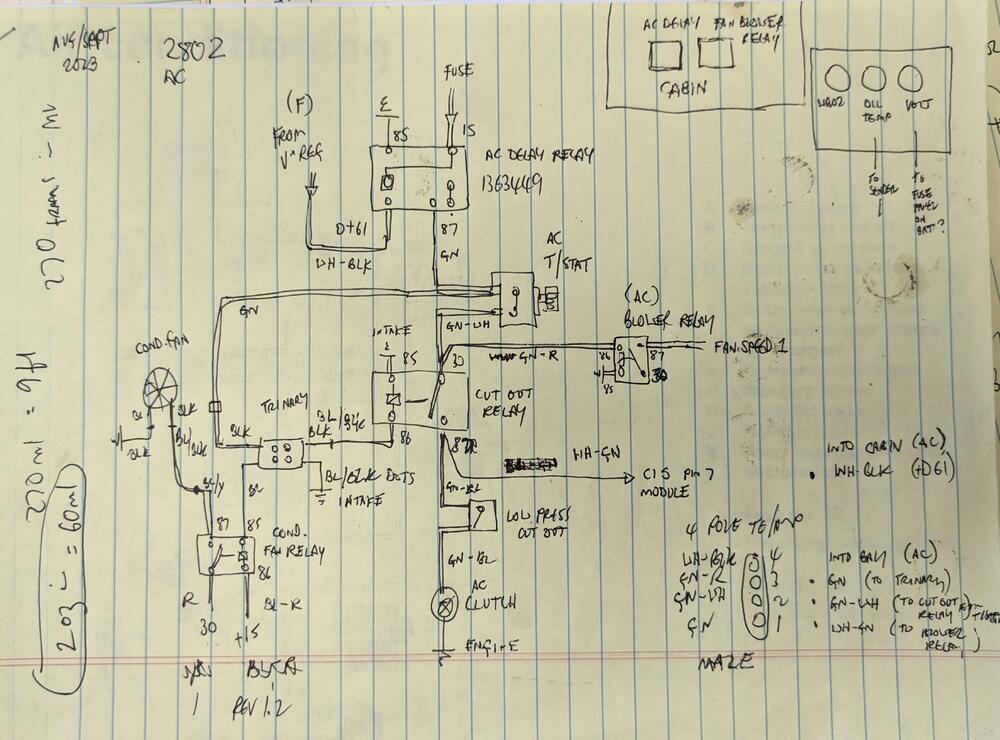 AUG/SEPT
2023
2802
AC
FUSE
(F)
FROM
V-REG
85
15
AC DELAY RELAY
1363449
D+61
WH-BLK
87
GN
AC
T/STAT
AC DELAY
FAN BLOWER
RELAY
CABIN
OIL
TEMP
VOLT
TO
SENDER
TO
FUSE
PANEL
ON
BAT?
270
270ml = 9fl
= 60ml
GN
GN-WH
INTAKE
85
30
GN-R
(AC)
BLOWER RELAY
86
87
30
85
FAN SPEED 1
COND. FAN
BL
BLK
BLK
BL/
BLK
TRINARY
BLK
BL/BLK
BLK
CUT OUT
RELAY
86
87
BL/Y
BL
BL/BLK DOTS
INTAKE
WH-GN
CIS PIN 7
MODULE
GN-BL
LOW PRESS
CUT OUT
GN-BL
87
85
COND.
FAN RELAY
86
R
30
BL-R
+15
AC
CLUTCH
ENGINE
1
REV 1.2
INTO CABIN (AC)
WH-BLK (+D61)
4 POLE
WH-BLK 4
GN-R 3
GN-WH 2
GN 1
MALE
INTO BAY (AC)
GN (TO TRINARY)
GN-WH (TO CUT OUT
RELAY)
WH-GN (TO BLOWER
RELAY)